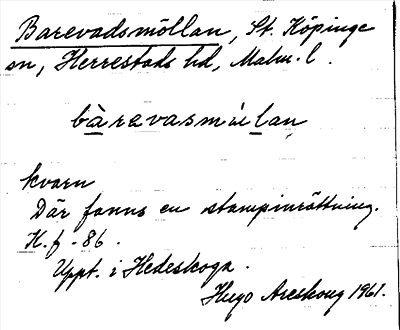 Barevadsmöllan, St. Köpinge
sn, Herrestads hd, Malm. l.
bàrevasmúlan
kvarn
Där fanns en stampinrättning.
H.f. - 86.
Uppt. i Hedeskoga.
Hugo Areskoug 1961.